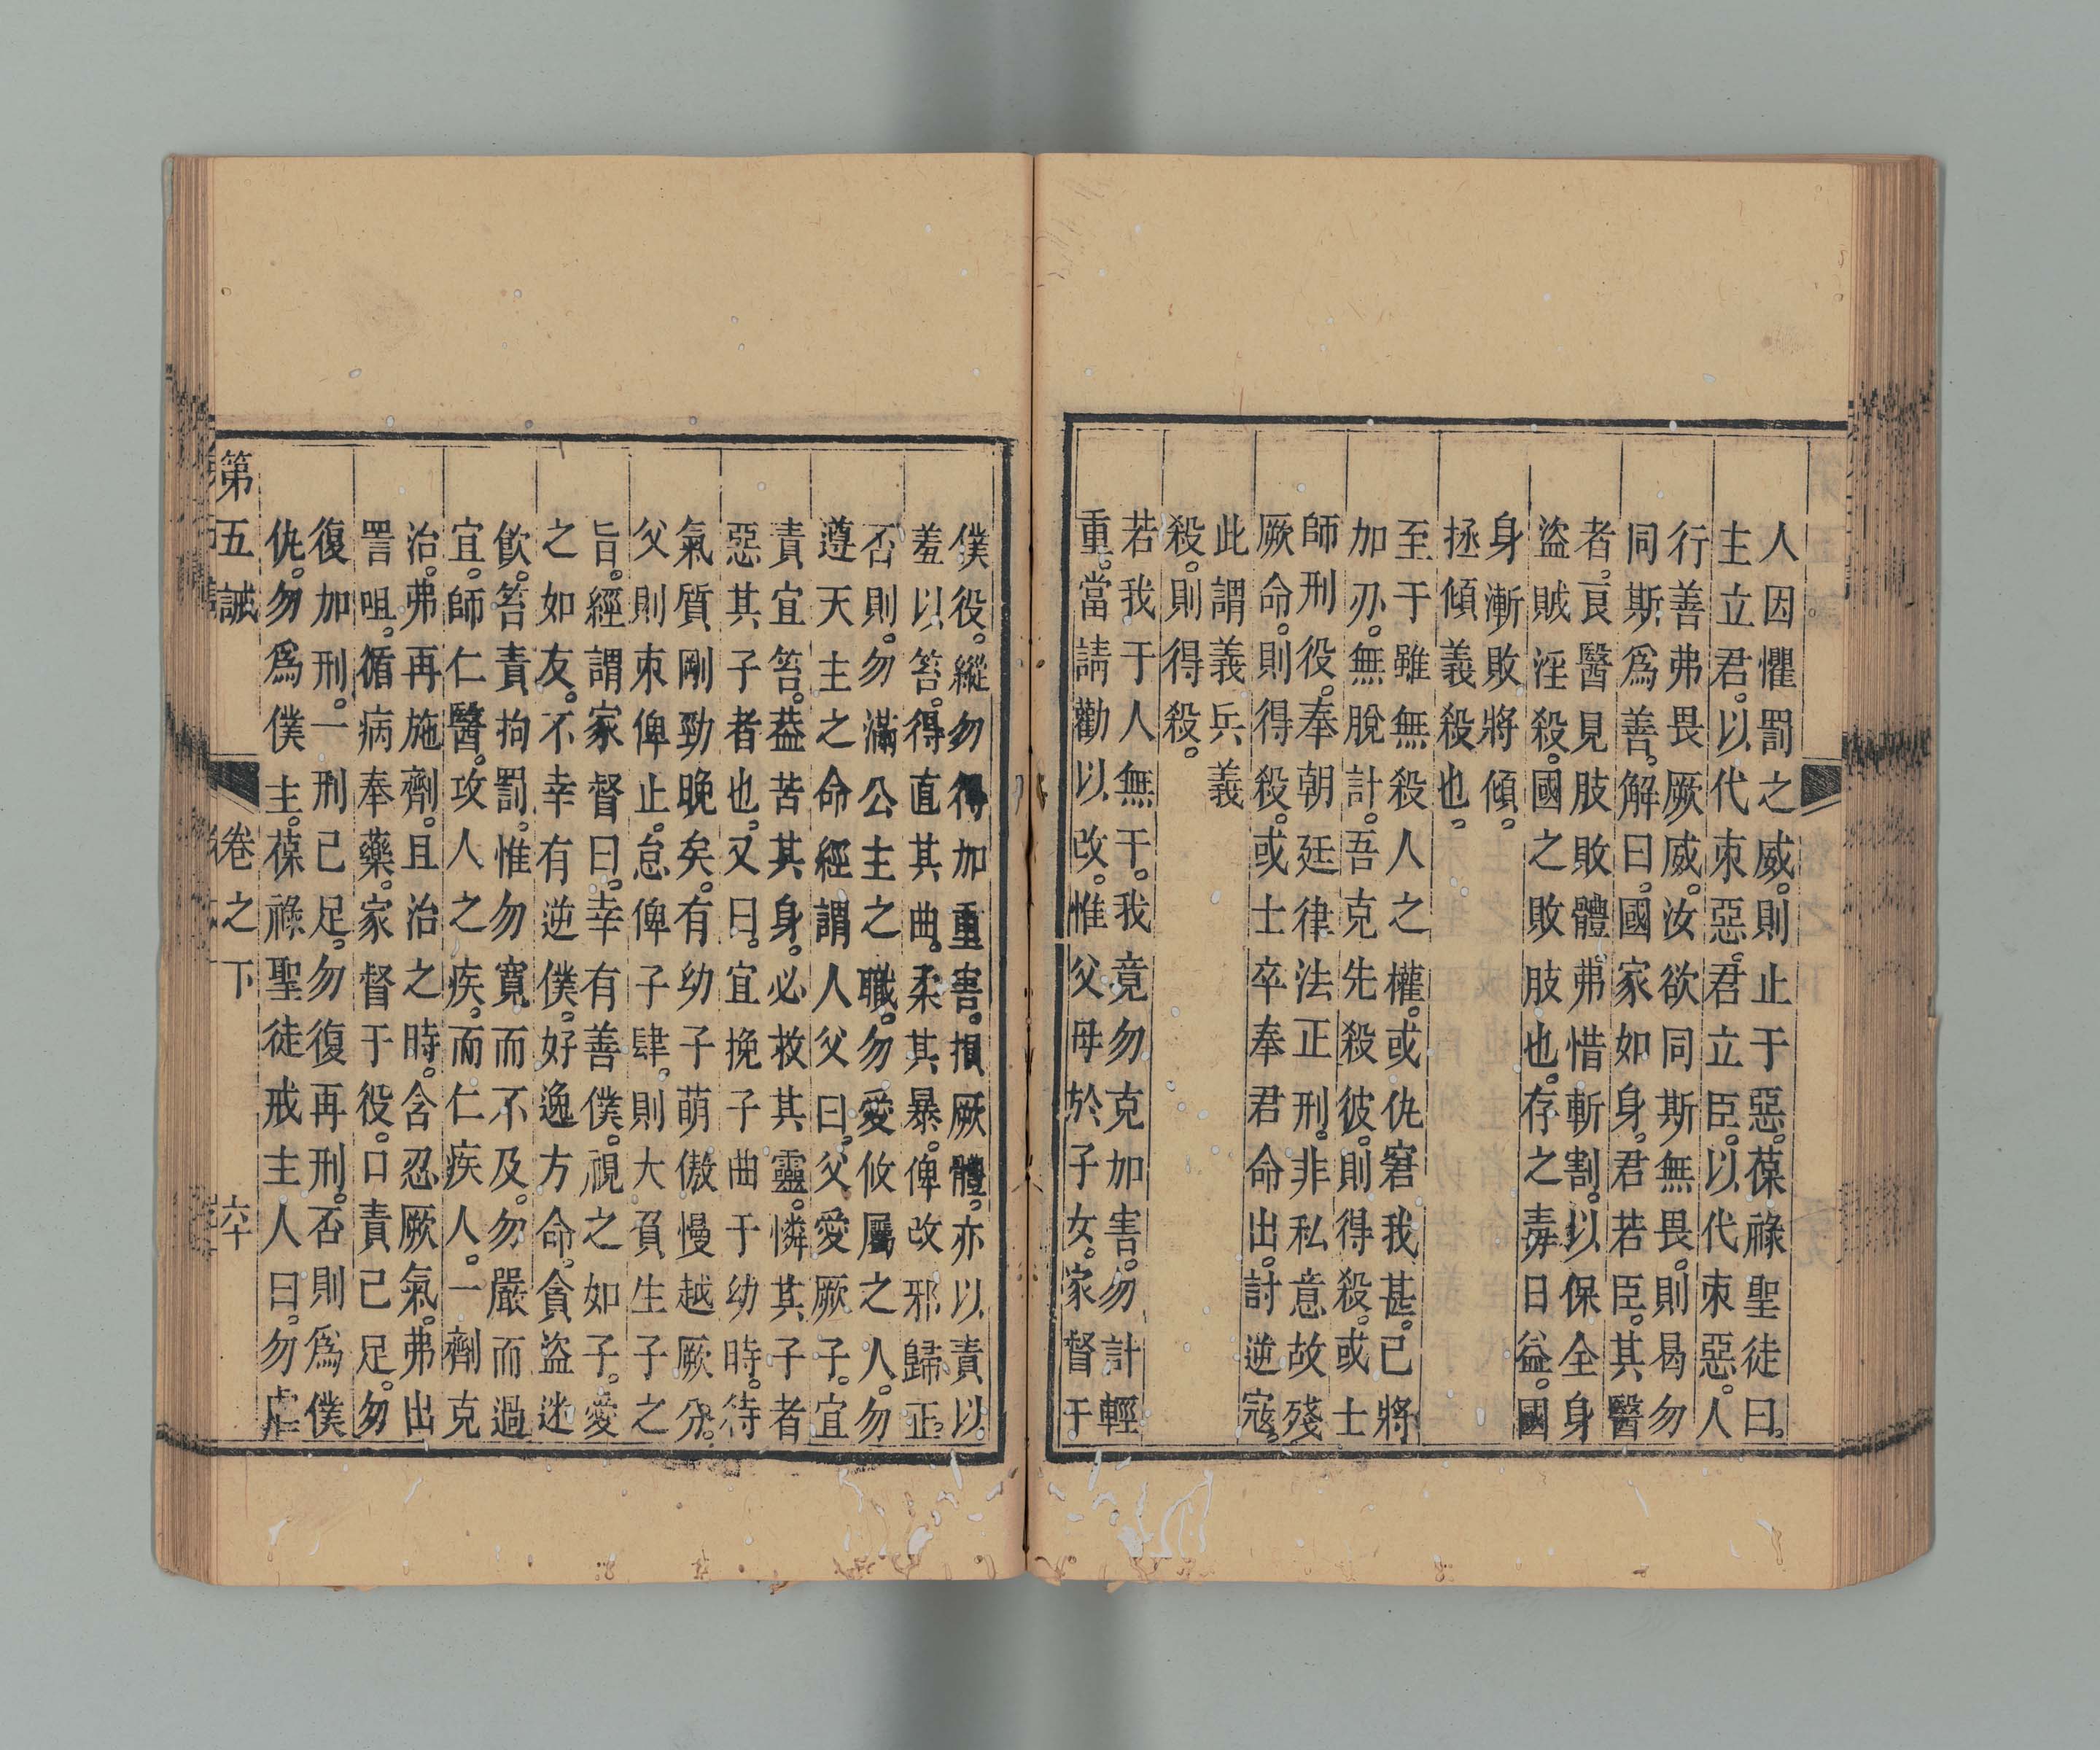 人因懼罰之威。則止于惡。葆祿聖徒曰。
主立君。以代朿惡。君立臣。以代朿惡。人
行善弗畏厥威。汝欲同斯無畏。則曷勿
同斯爲善。解曰。國家如身。君若臣。其醫
者。良醫見肢敗體。弗惜斬割。以保全身
盜賊淫殺。國之敗肢也。存之毒日益。國
身漸敗將傾。
拯傾義殺也。
至于雖無殺人之權。或仇窘我甚。已將
加刃。無脫計。吾克先殺彼。則得殺。或士
師刑役。奉朝廷律法正刑。非私意故殘
厥命。則得殺。或士卒奉君命出。討逆寇。
此謂義兵義
殺。則得殺。
若我于人無干。我竟勿克加害。勿計輕
重。當請勸以改。惟父母於子女。家督于
僕役。縱勿得加重害。損厥體。亦以責以
羞以笞。得直其曲。柔其暴。俾改邪歸正。
否則。勿滿公主之職。勿愛攸屬之人。勿
遵天主之命經謂人父曰。父愛厥子。宜
責宜笞。葢苦其身。必救其靈。憐其子者
惡其子者也。又曰。宜挽子曲于幼時。待
氣質剛勁晚矣。有幼子萌傲慢越厥分。
父則朿俾止。怠俾子肆。則大負生子之
旨。經謂家督曰。幸有善僕。視之如子。愛
之如友。不幸有逆僕。好逸方命。貪盜迷
飲。笞責拘罰。惟勿寬而不及。勿嚴而過
宜。師仁醫。攻人之疾。而仁疾人。一劑克
治。弗再施劑。且治之時。含忍厥氣。弗出
詈咀。循病奉藥。家督于役。口責已足。勿
復加刑。一刑已足。勿復再刑。否則爲僕
仇。勿爲僕主。葆祿聖徒戒主人曰。勿虐
第五誡 卷之下 六十